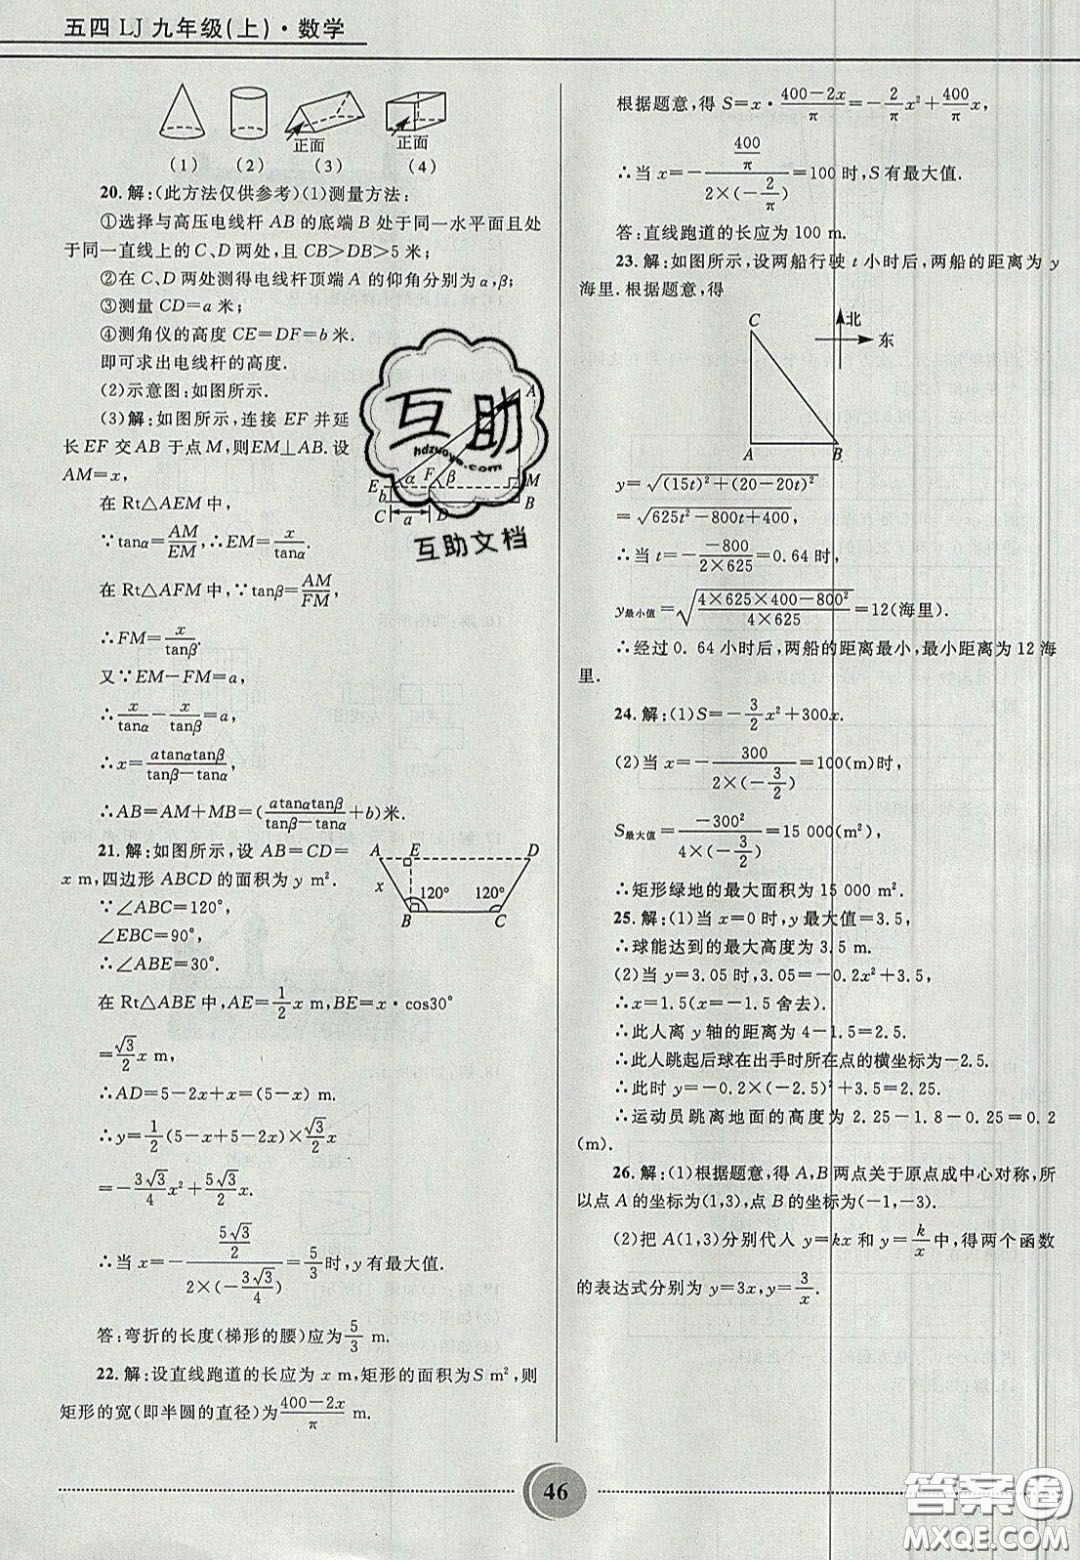 五四 LJ 九年级(上)·数学
正面 正面
(1) (2) (3) (4)
20. 解:(此方法仅供参考)(1)测量方法:
①选择与高压电线杆 AB 的底端 B 处于同一水平面且处
于同一直线上的 C、D 两处,且 CB>DB>5 米;
②在 C、D 两处测得电线杆顶端 A 的仰角分别为α,β;
③测量 CD=a 米;
④测角仪的高度 CE=DF=b 米.
即可求出电线杆的高度.
(2)示意图:如图所示.
(3)解:如图所示,连接 EF 并延
长 EF 交 AB 于点 M,则EM⊥AB. 设
AM=x,
A
E α F β M
b
C a D B
在 Rt△AEM 中,
∵tanα=AM/EM,∴EM=x/tanα.
在 Rt△AFM 中,∵tanβ=AM/FM,
∴FM=x/tanβ.
又∵EM-FM=a,
∴x/tanα-x/tanβ=a,
∴x=atanαtanβ/(tanβ-tanα)
∴AB=AM+MB=(atanαtanβ/(tanβ-tanα)+b)米.
21. 解:如图所示,设 AB=CD=
x m,四边形 ABCD 的面积为 y m².
A E D
x 120° 120°
B C
∵∠ABC=120°,
∠EBC=90°,
∴∠ABE=30°.
在 Rt△ABE 中,AE=1/2 x m,BE=x·cos30°
=√3/2 x m,
∴AD=5-2x+x=(5-x) m.
∴y=1/2(5-x+5-2x)×√3/2 x
=-3√3/4 x²+5√3/2 x.
∴当 x=-(5√3/2)/(2×(-3√3/4))=5/3时,y有最大值.
答:弯折的长度(梯形的腰)应为5/3 m.
22. 解:设直线跑道的长应为 x m,矩形的面积为S m²,则
矩形的宽(即半圆的直径)为(400-2x)/π m.
根据题意,得 S=x·(400-2x)/π=-2/π x²+400/π x,
∴当 x=-(400/π)/(2×(-2/π))=100 时,S 有最大值.
答:直线跑道的长应为 100 m.
23. 解:如图所示,设两船行驶 t 小时后,两船的距离为 y
海里.根据题意,得
C 北
东
A B
y=√((15t)²+(20-20t)²)
=√(625t²-800t+400),
∴当 t=-(-800)/(2×625)=0.64 时,
y最小值=√((4×625×400-800²)/(4×625))=12(海里).
∴经过 0.64 小时后,两船的距离最小,最小距离为 12 海
里.
24. 解:(1)S=-3/2 x²+300x.
(2)当 x=-300/(2×(-3/2))=100(m)时,
S最大值=-300²/(4×(-3/2))=15 000(m²),
∴矩形绿地的最大面积为 15 000 m².
25. 解:(1)当 x=0 时,y 最大值=3.5,
∴球能达到的最大高度为 3.5 m.
(2)当 y=3.05 时,3.05=-0.2x²+3.5,
∴x=1.5(x=-1.5 舍去).
∴此人离 y 轴的距离为 4-1.5=2.5.
∴此人跳起后球在出手时所在点的横坐标为-2.5.
∴此时 y=-0.2×(-2.5)²+3.5=2.25.
∴运动员跳离地面的高度为 2.25-1.8-0.25=0.2
(m).
26. 解:(1)根据题意,得 A,B 两点关于原点成中心对称,所
以点 A 的坐标为(1,3),点 B 的坐标为(-1,-3).
(2)把 A(1,3)分别代人 y=kx 和 y=k/x 中,得两个函数
的表达式分别为 y=3x,y=3/x.
互助
hdzuoye.com
互助文档
46
答案圈
MXQE.COM